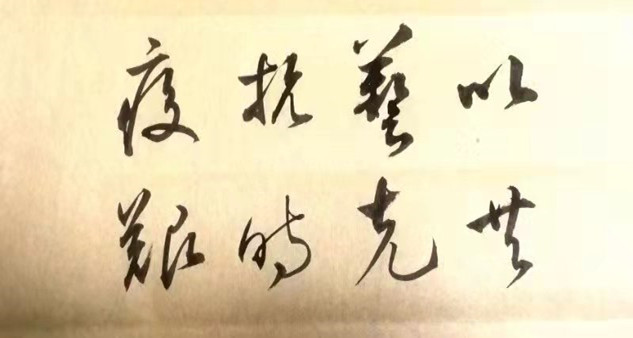 以藝抗疫
共克時艱